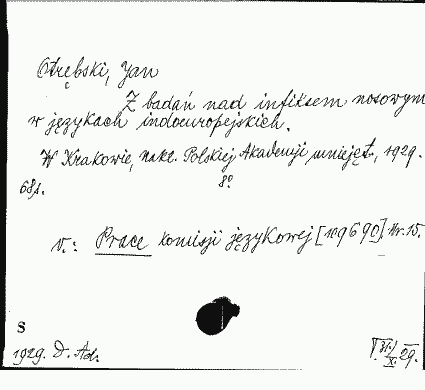 Otrębski, Jan
Z badań nad infiksem nosowym
w językach indoeuropejskich.
W Krakowie, nakł. Polskiej Akademji umiejęt., 1929.
68s. 8º
v.: Prace komisji językowej [109690]. Nr. 15.
S
1929. D. Ad. 29.